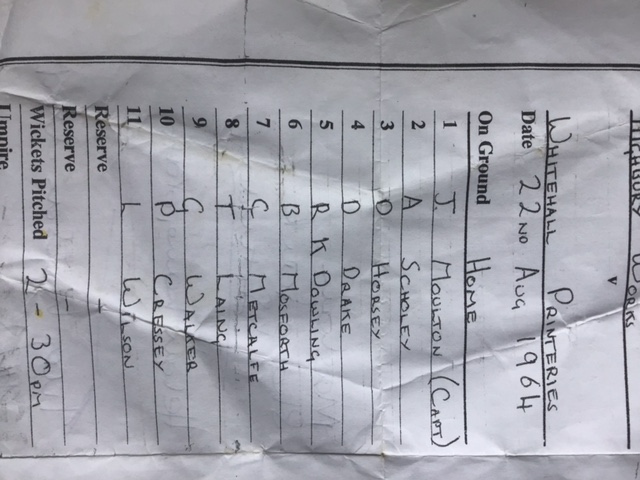 Works
v
WHITEHALL PRINTERIES
Date 22ND AUG 1964
On Ground HOME
1 J MOULTON (CAPT)
2 A SCHOLEY
3 D HORSEY
4 D DRAKE
5 R K DOWLING
6 B MOSFORTH
7 G METCALFE
8 T LAING
9 G WALKER
10 P CRESSEY
11 L WILSON
Reserve -
Reserve -
Wickets Pitched 2-30PM
Umpire -